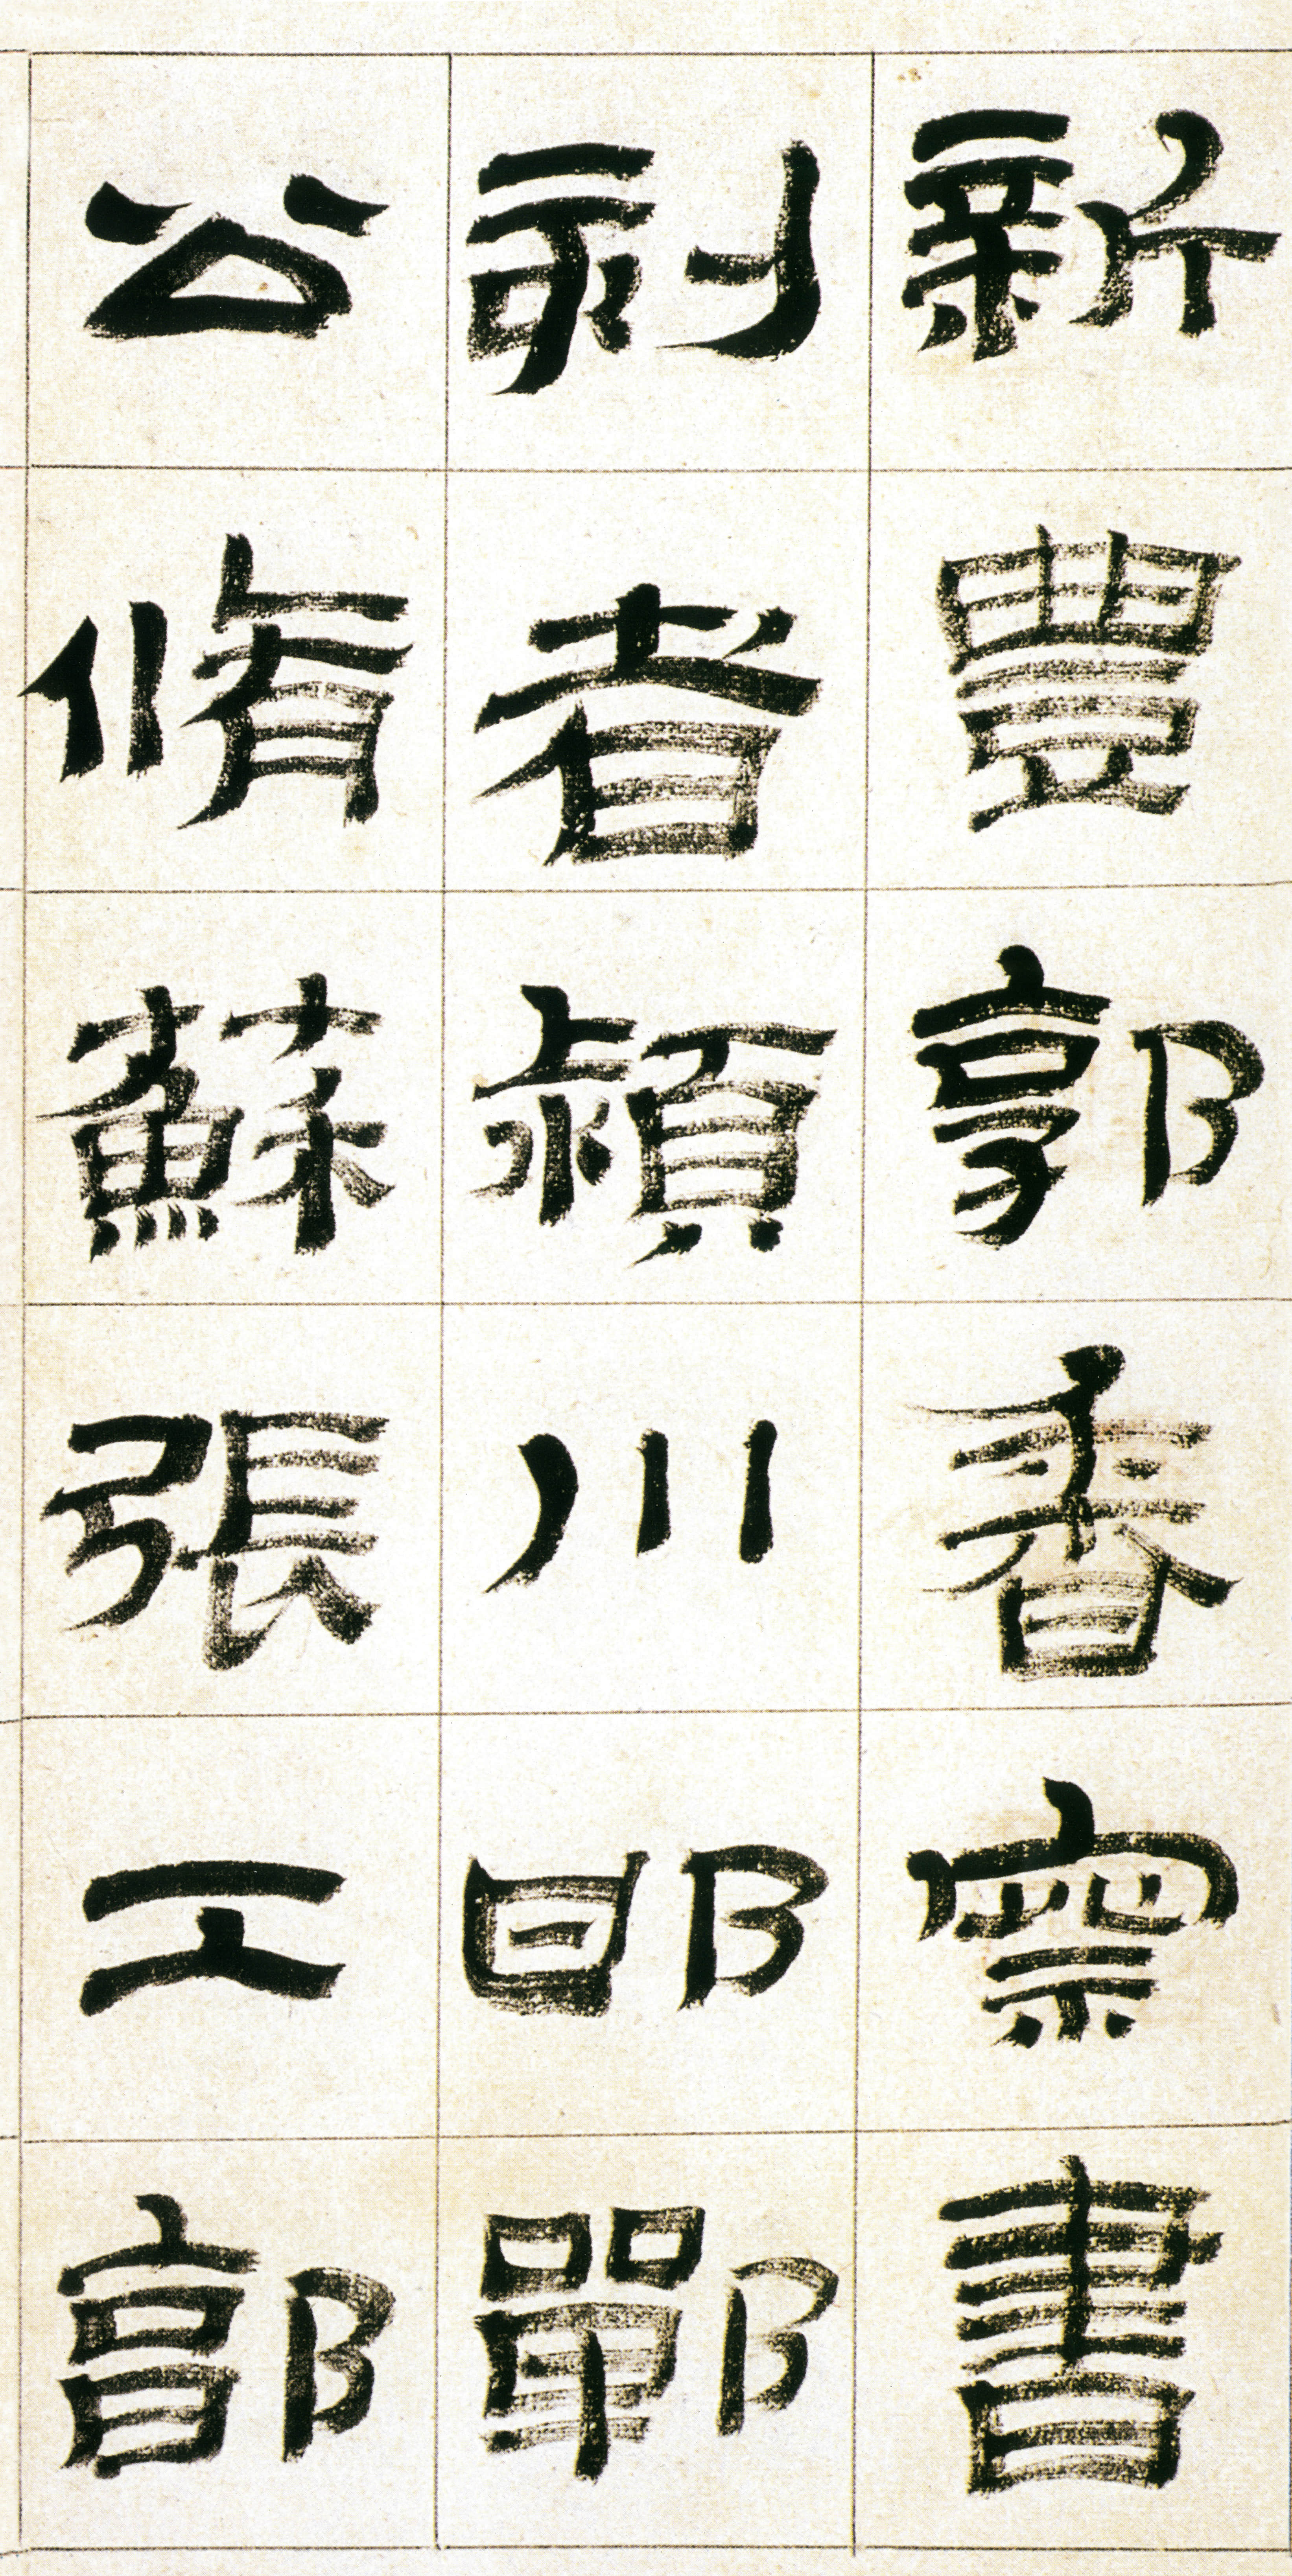 新豊郭香察書
刻者潁川邯鄲
公脩蘇張工郭